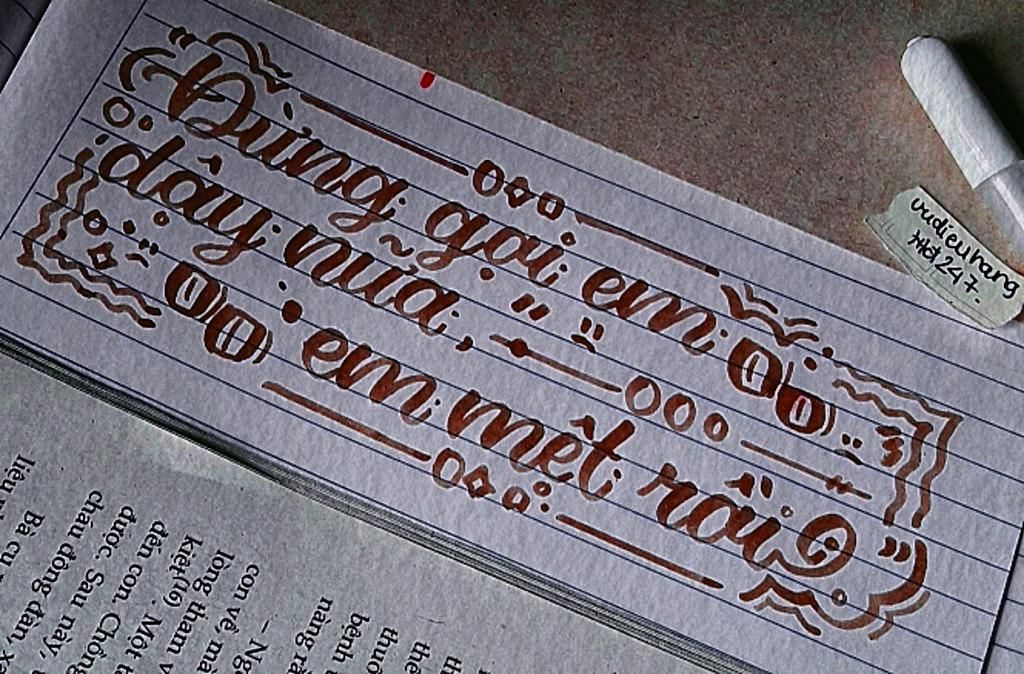 Đừng gọi em
dậy nữa,
em mệt rồi
vudieuhang
Hot247.
liệu
Bà cụ
cháu đông đàn,
được. Sau này,
đến con. Chồng
kiệt(16). Một
lòng than
con vẻ, mà
nàng
bệnh
thuố
thê
th